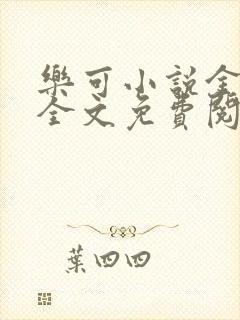 樂可小說全
全文免費閱
葉四四